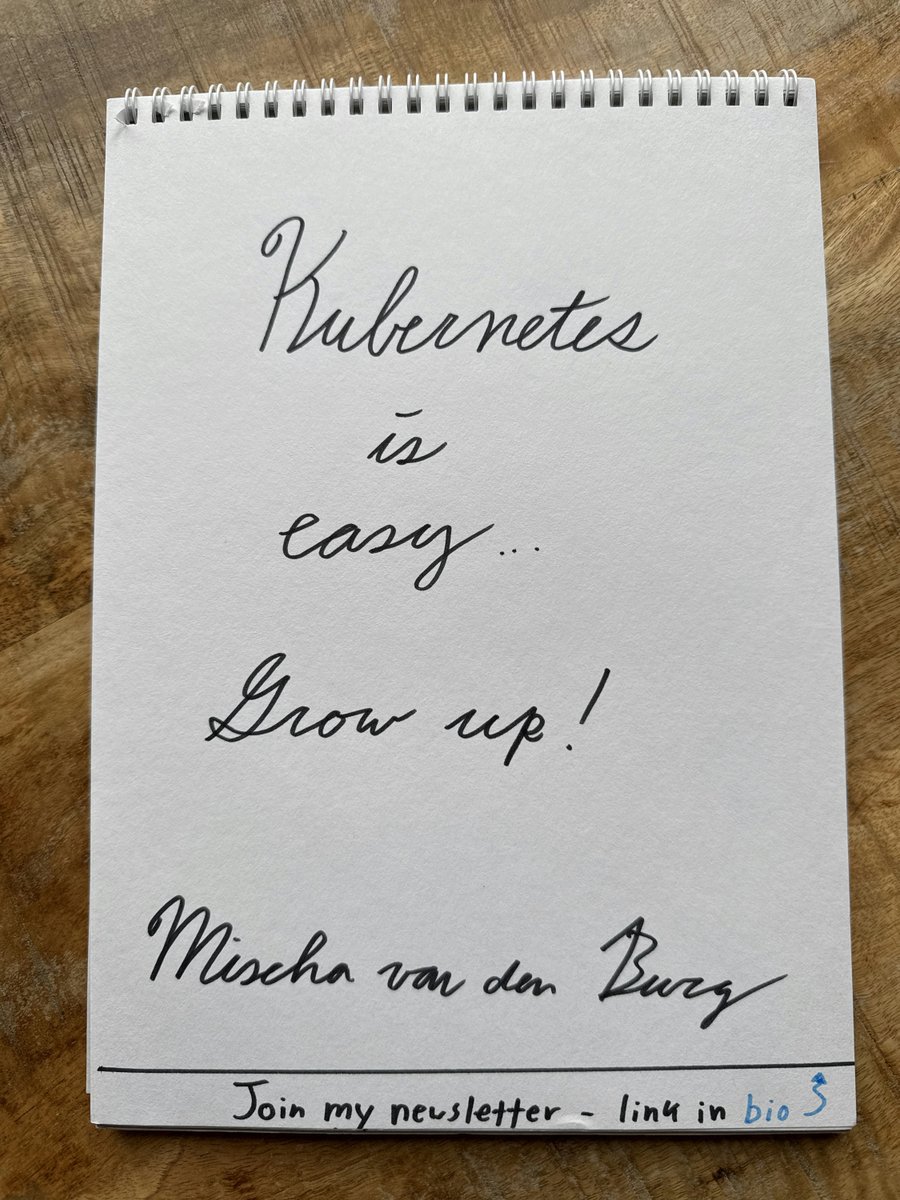 Kubernetes
is
easy...
Grow up!
Mischa van den Burg
Join my newsletter - link in bio